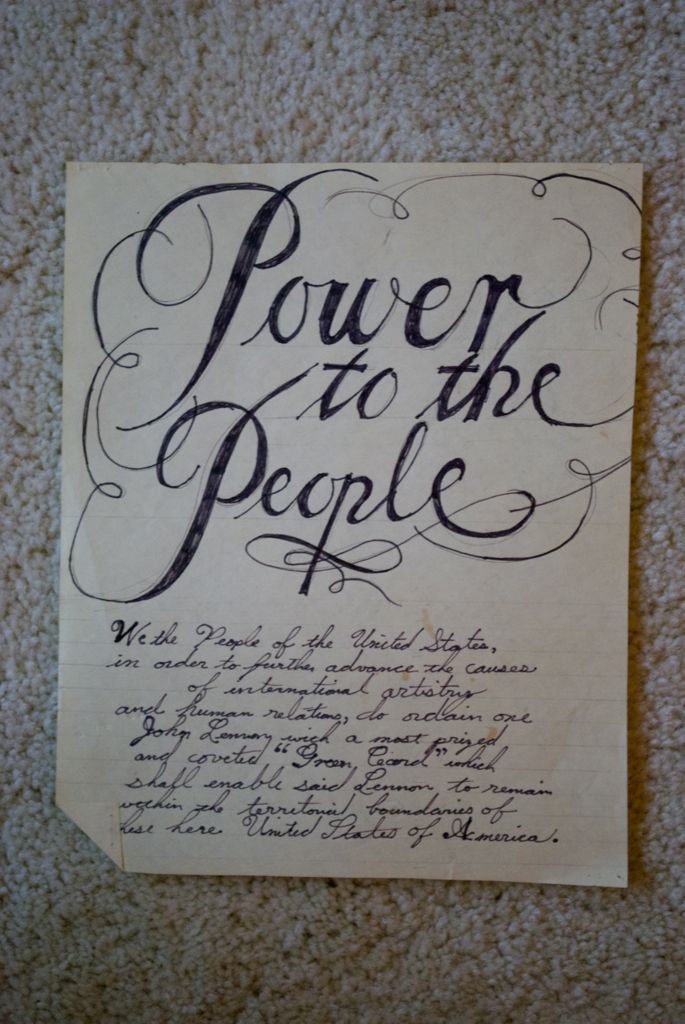 Power
to the
People
We the People of the United States,
in order to further advance the causes
of international artistry
and human relations, do ordain one
John Lennon, with a most prized
and coveted "Green Card" which
shall enable said Lennon to remain
within the territorial boundaries of
hese here United States of America.